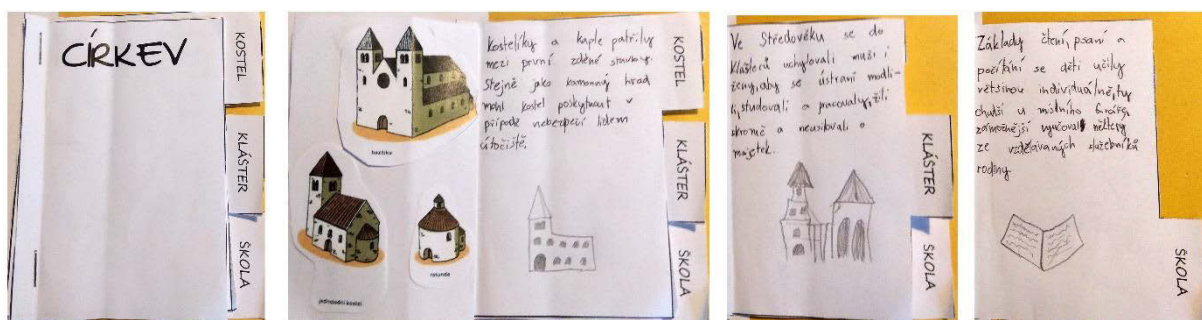 CÍRKEV
KOSTEL
KLÁŠTER
ŠKOLA
bazilika
jednolodní kostel
rotunda
Kostelíky a kaple patřily
mezi první zděné stavby.
Stejně jako kamenný hrad
mohl kostel poskytnout v
případě nebezpečí lidem
útočiště.
KOSTEL
KLÁŠTER
ŠKOLA
Ve Středověku se do
klášterů uchylovali muži i
ženy, aby se ústraní modli-
li, studovali a pracovaly, žili
skromě a neusilovali o
majetek.
KLÁŠTER
ŠKOLA
Základy čtení, psaní a
počítání se děti učily
většinou individuálně, ty
chudší u místního faráře,
zámožnější vyučoval některý
ze vzdělavaných služebníků
rodiny
ŠKOLA